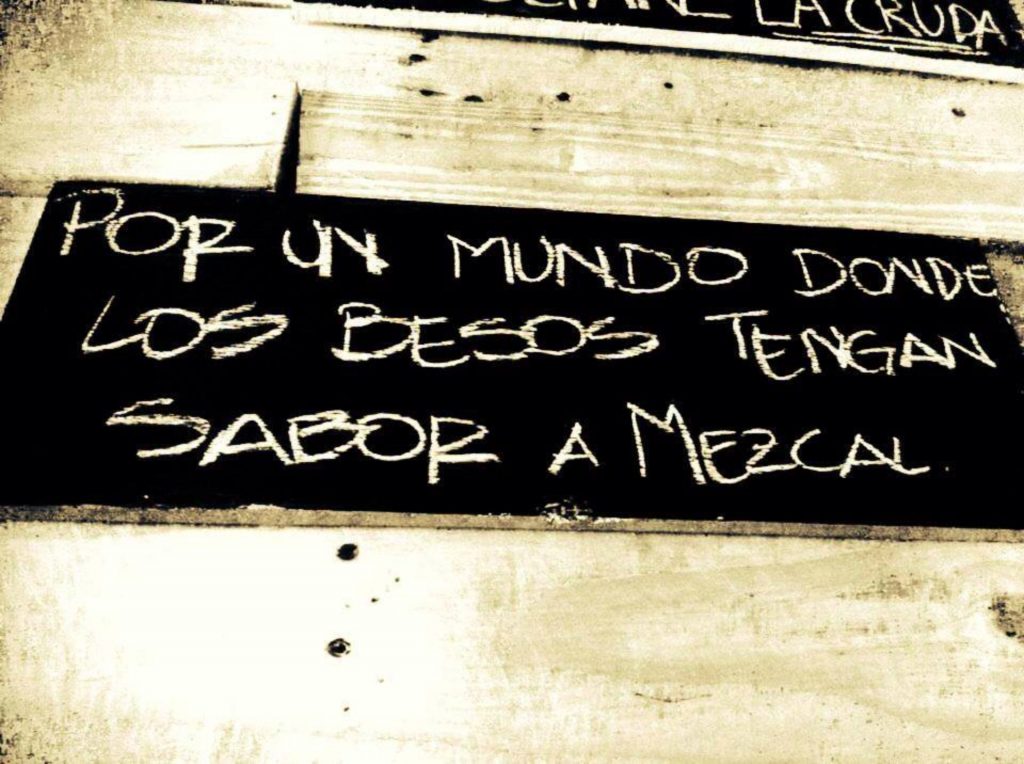 LA CRUDA
POR UN MUNDO DONDE
LOS BESOS TENGAN
SABOR A MEZCAL.